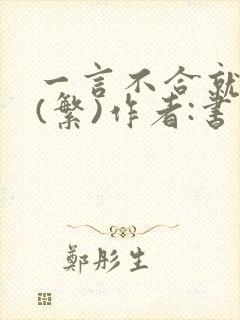 一言不合就
(繁)作者:書
鄭彤生